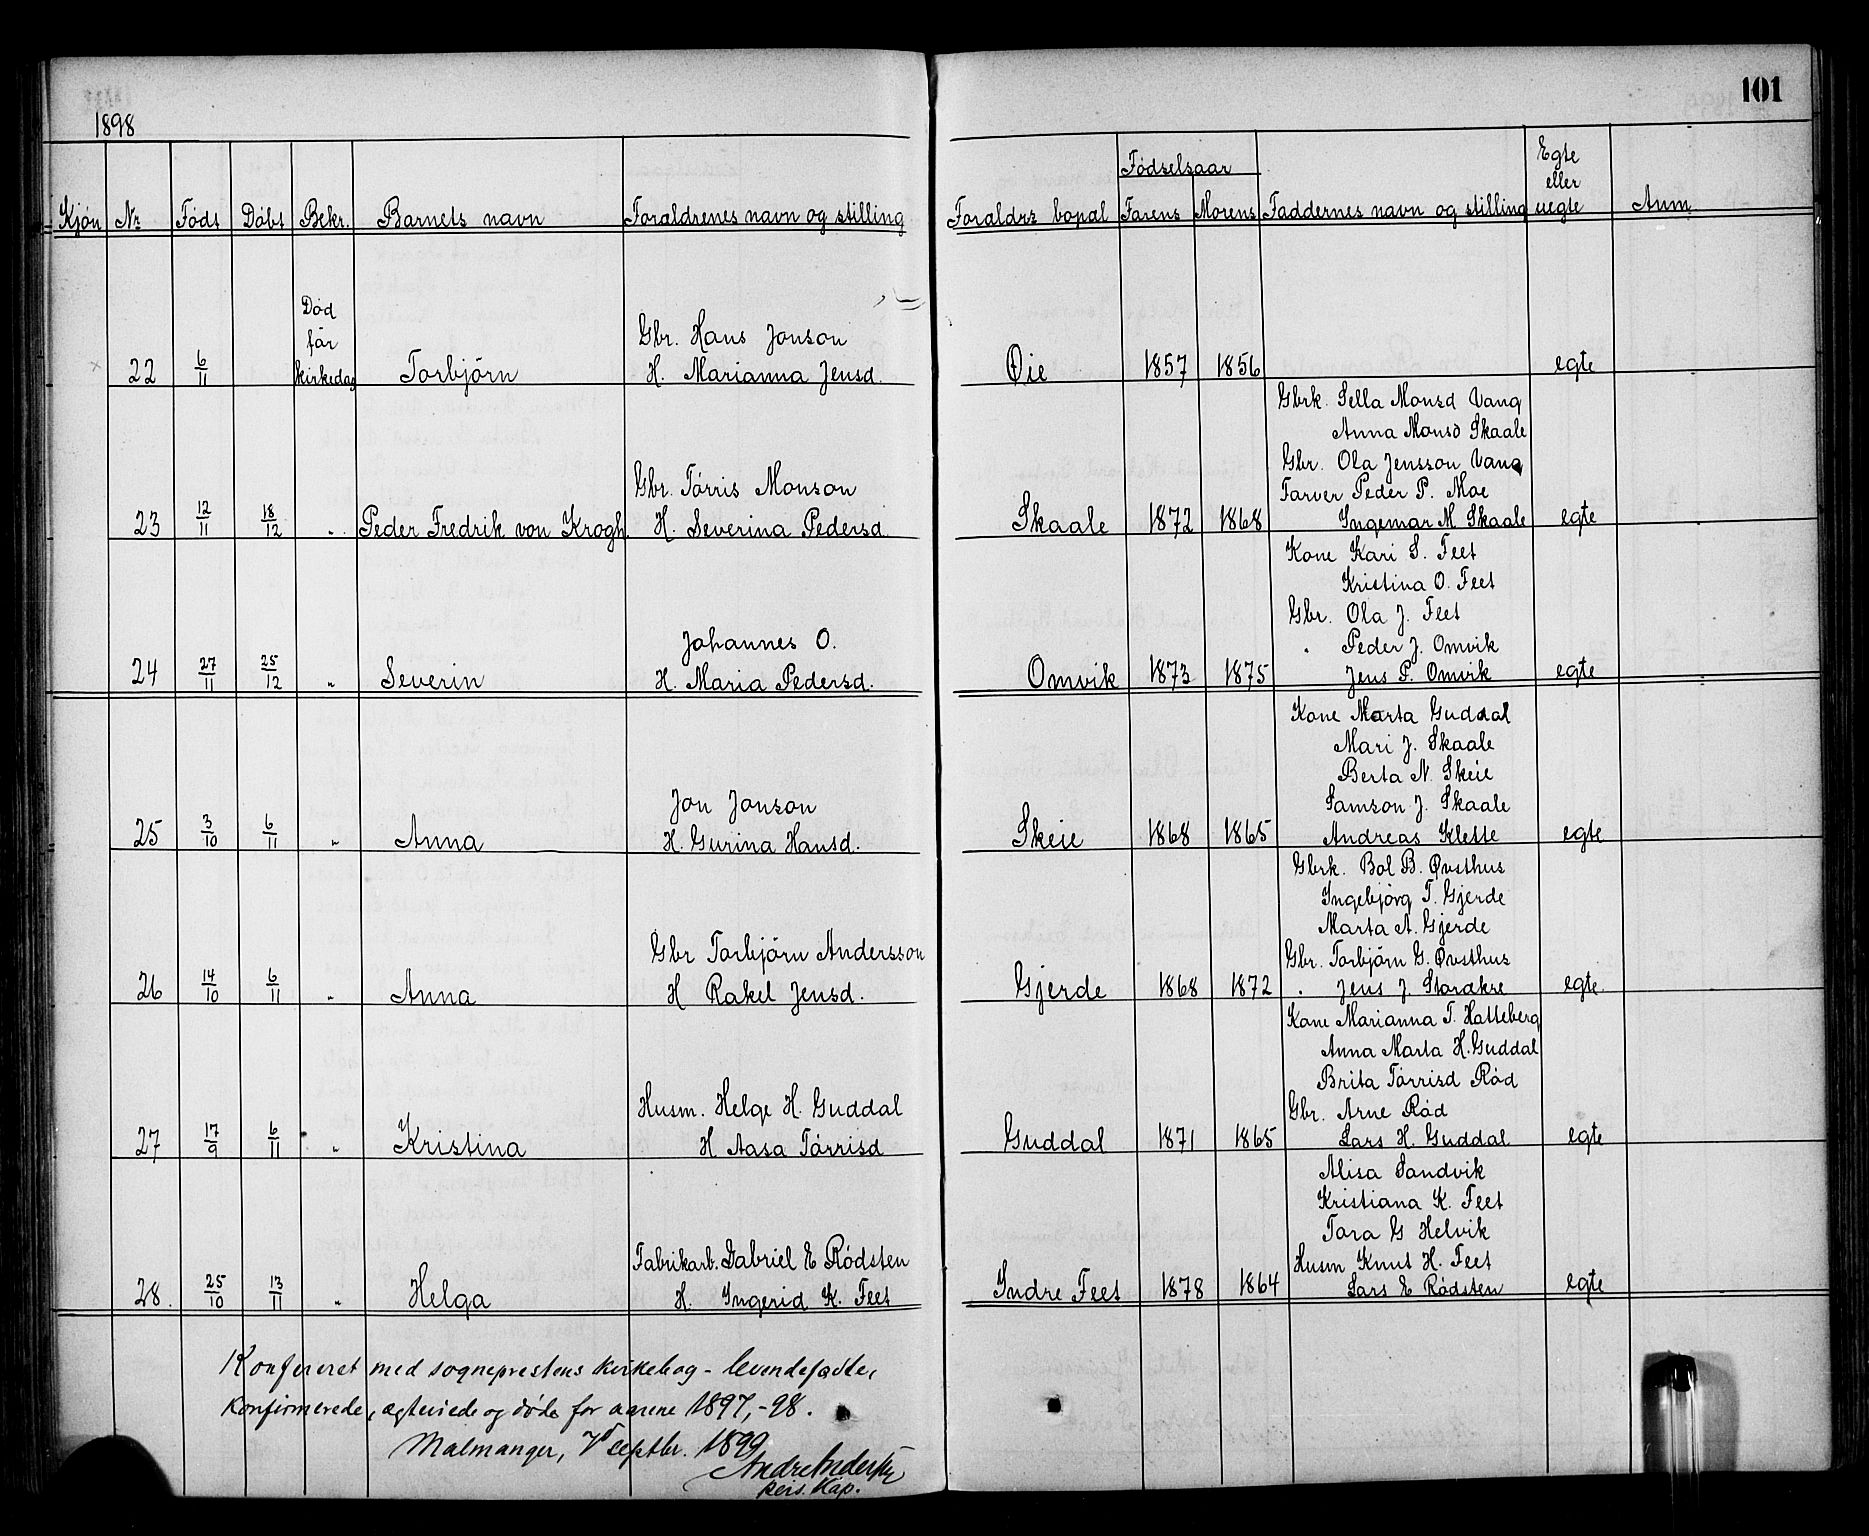 1898
101
Kjøn Nr Født Døbt Bekr. Barnets navn Foraldrenes navn og stilling Foraldrs bopal Fødselsaar Farens Morens Faddernes navn og stilling Egte eller uegte Anm
Død
før
Gbr. Hans Jonson
22 6/11 kirkedag Torbjörn H. Marianna Jensd. Øie 1857 1856 egte
Gbrk. Sella Monsd Vang
Anna Monsd Skaale
Gbr. Ola Jensson Vang
Gbr. Tørris Monson Farver Peder P. Moe
23 12/11 18/12 " Peder Fredrik von Krogh. H. Severina Pedersd. Skaale 1872 1868 Ingemar M Skaale egte
Kone Kari S. Feet
Kristina O. Feet
Gbr. Ola J. Feet
Johannes O. " Peder J. Omvik
24 27/11 25/12 " Severin H. Maria Pedersd. Omvik 1873 1875 Jens P. Omvik egte
Kone Marta Guddal
Mari J. Skaale
Berta N. Skeie
Jon Jonson Samson J. Skaale
25 3/10 6/11 " Anna H. Gurina Hansd. Skeie 1868 1865 Andreas Klette egte
Gbrk. Bol B. Øvsthus
Ingebjörg T. Gjerde
Marta A. Gjerde
Gbr Torbjörn Andersson Gbr. Torbjörn G. Øvsthus
26 14/10 6/11 " Anna H Rakel Jensd. Gjerde 1868 1872 " Jens J. Storakre egte
Kone Marianna T. Hatteberg
Anna Marta H. Guddal
Brita Tørrisd Rød
Husm. Helge H. Guddal Gbr. Arne Rød
27 17/9 6/11 " Kristina H Aasa Tørrisd Guddal 1871 1865 Lars H. Guddal egte
Alisa Sandvik
Kristiana K. Feet
Tora G Helvik
Fabrikarb. Gabriel E Rødsten Husm Knut H. Feet
28. 25/10 13/11 " Helga H. Ingerid K. Feet Indre Feet 1878 1864 Lars E Rødsten egte
Konfereret med sogneprestens kirkebog - levendefødte,
konfirmerede, ægteviede og døde for aarene 1897,-98.
Malmanger, 7 septbr. 1899
pers. Kap.